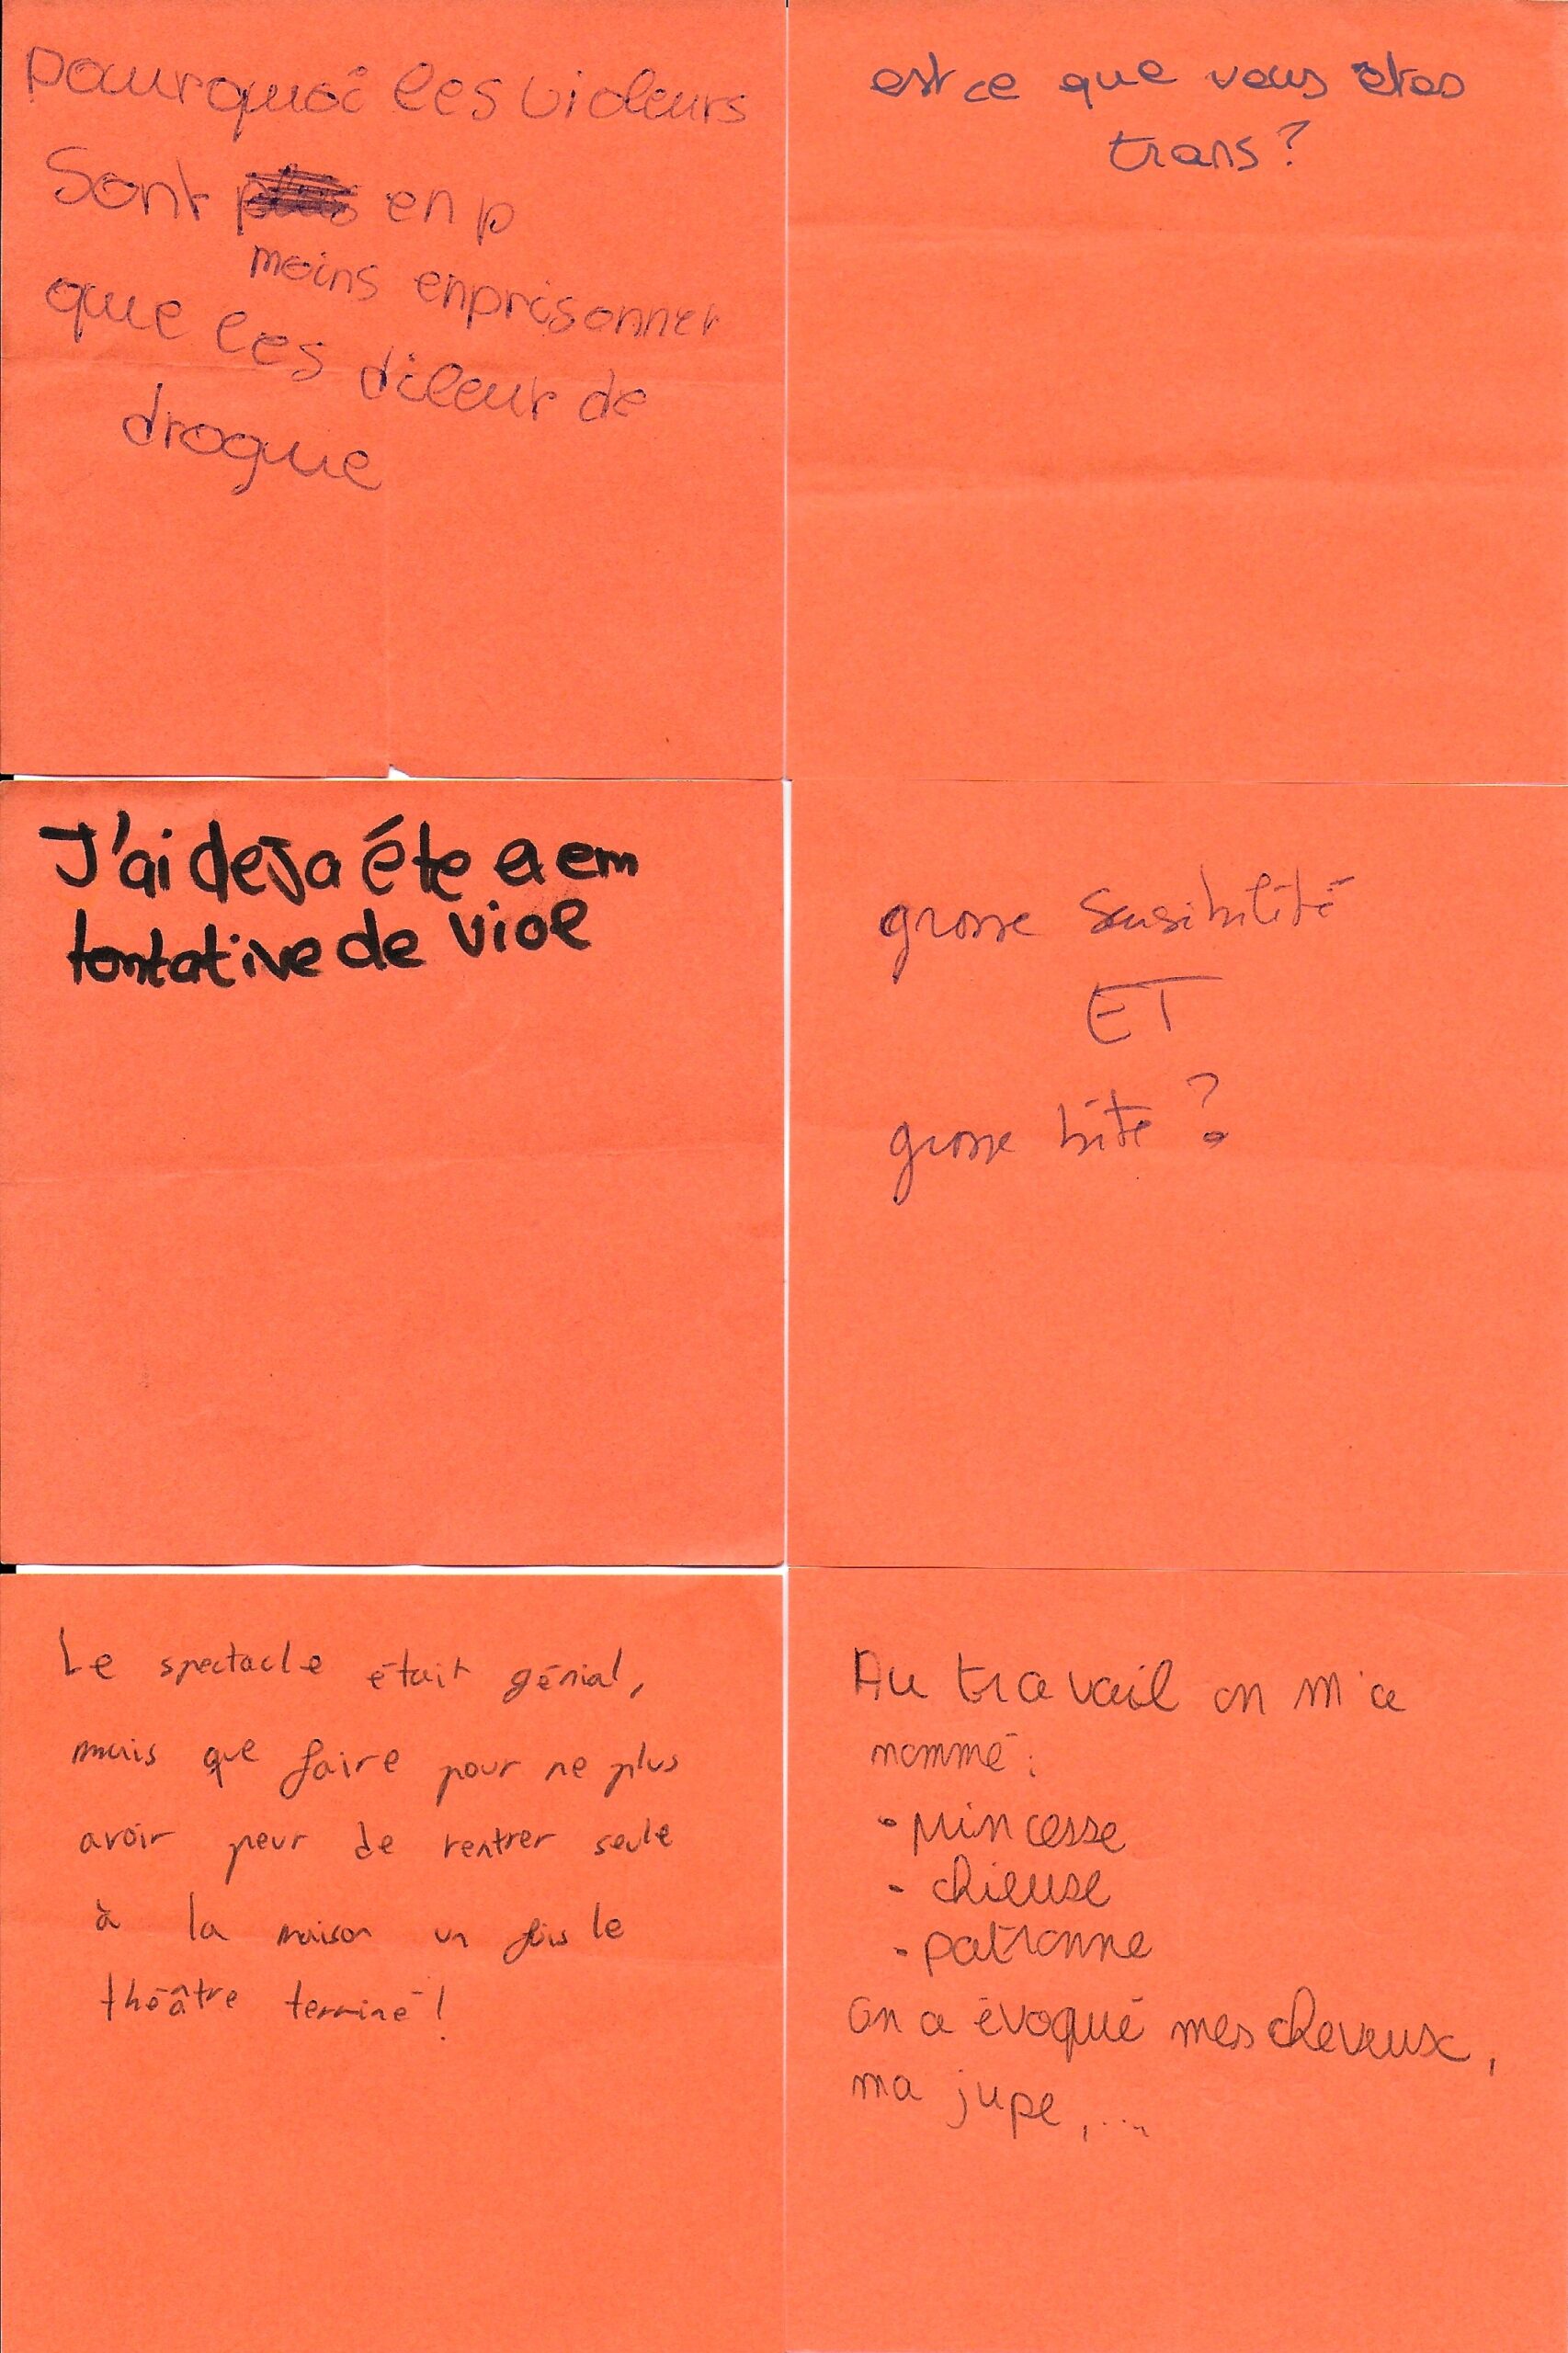 pourquoi les violeurs
sont en p
moins enprisonner
que les dileur de
drogue
est ce que vous êtes
trans?
J'ai deja éte a em
tentative de viol
grosse sensibilité
ET
grosse bite ?
Le spectacle était génial,
mais que faire pour ne plus
avoir peur de rentrer seule
à la maison un fois le
théâtre terminé!
Au travail on m'a
nommé:
- princesse
- chieuse
- patronne
On a évoqué mes cheveux,
ma jupe,...